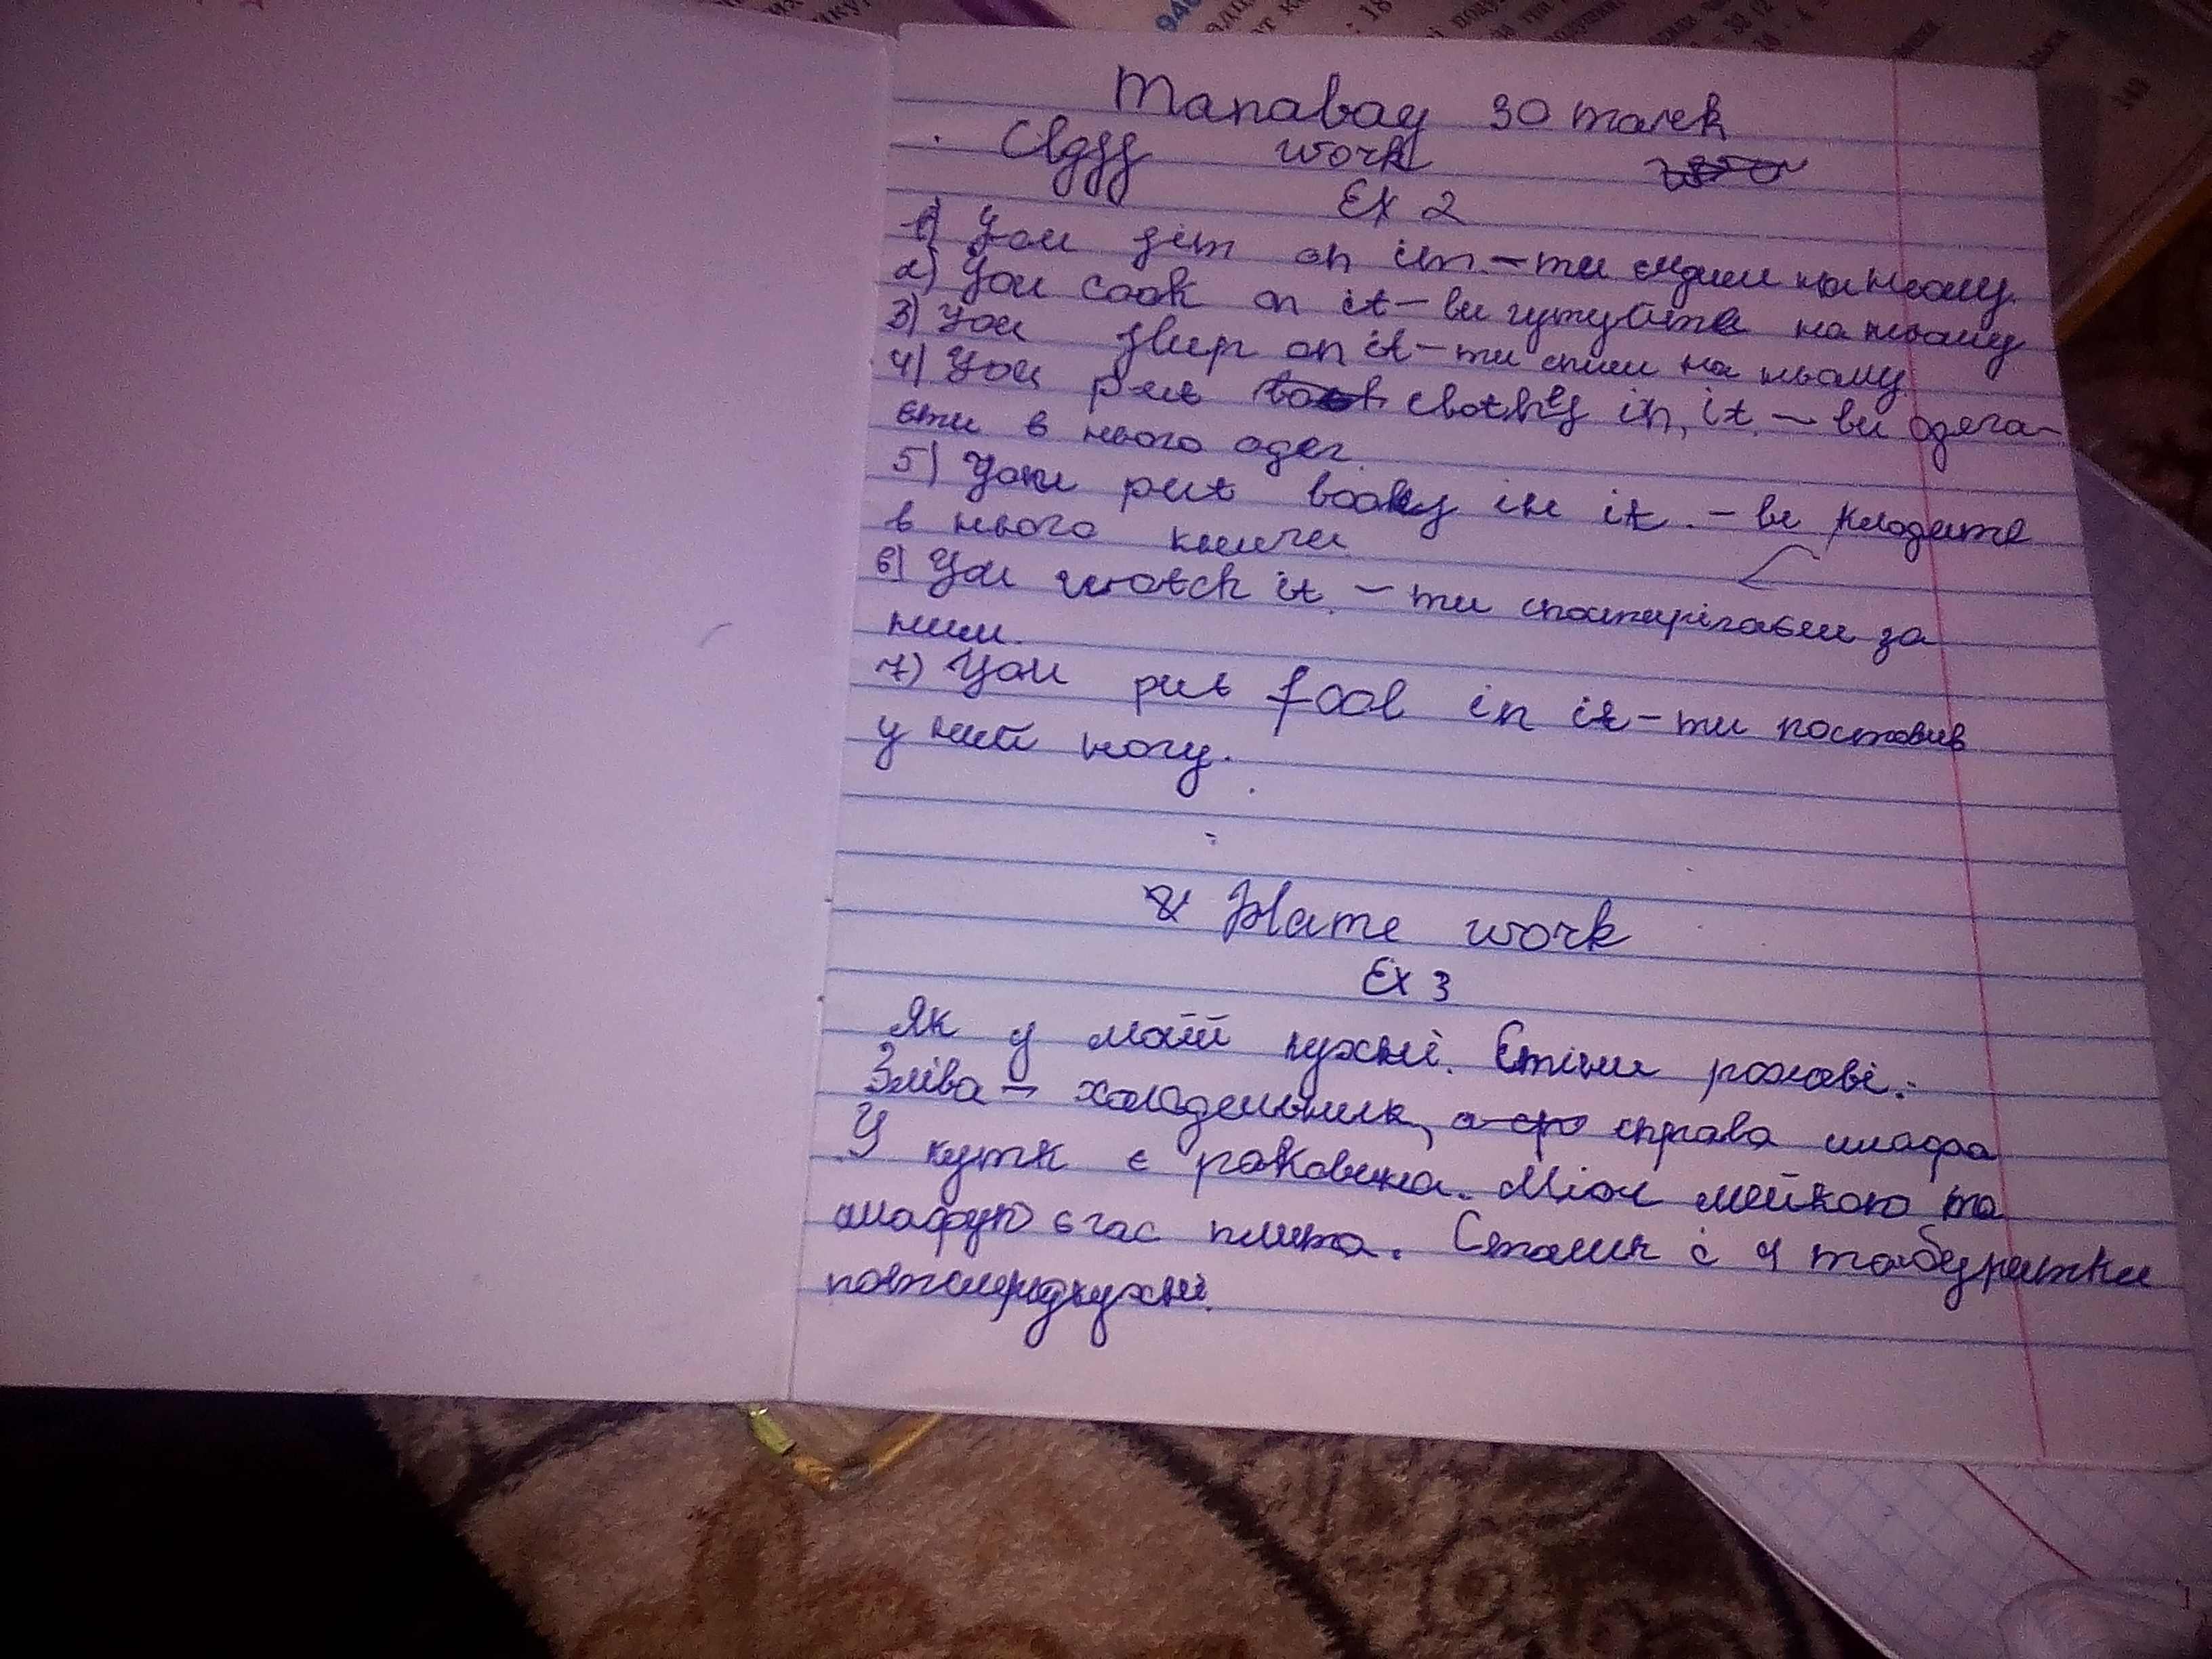 Manabay 30 march
Class work
Ex 2
1) You sit on it. – ти сидиш на ньому.
2) You cook on it – ви готуєте на ньому
3) You sleep on it – ти спиш на ньому
4) You put clothes in it. – ви одяга-
єти в нього одяг.
5) You put books in it. – ви кладите
в нього книги
6) You watch it. – ти спостерігаєш за
ним.
7) You put foot in it – ти поставив
у ній ногу.
Home work
Ex 3
Як у моїй кухні. Стіни рожеві.
Зліва – холодельник, справа шафа
У кутк є раковина. Між мойкою та
шафую є газ плита. Столик і 4 табуретки
кухні.